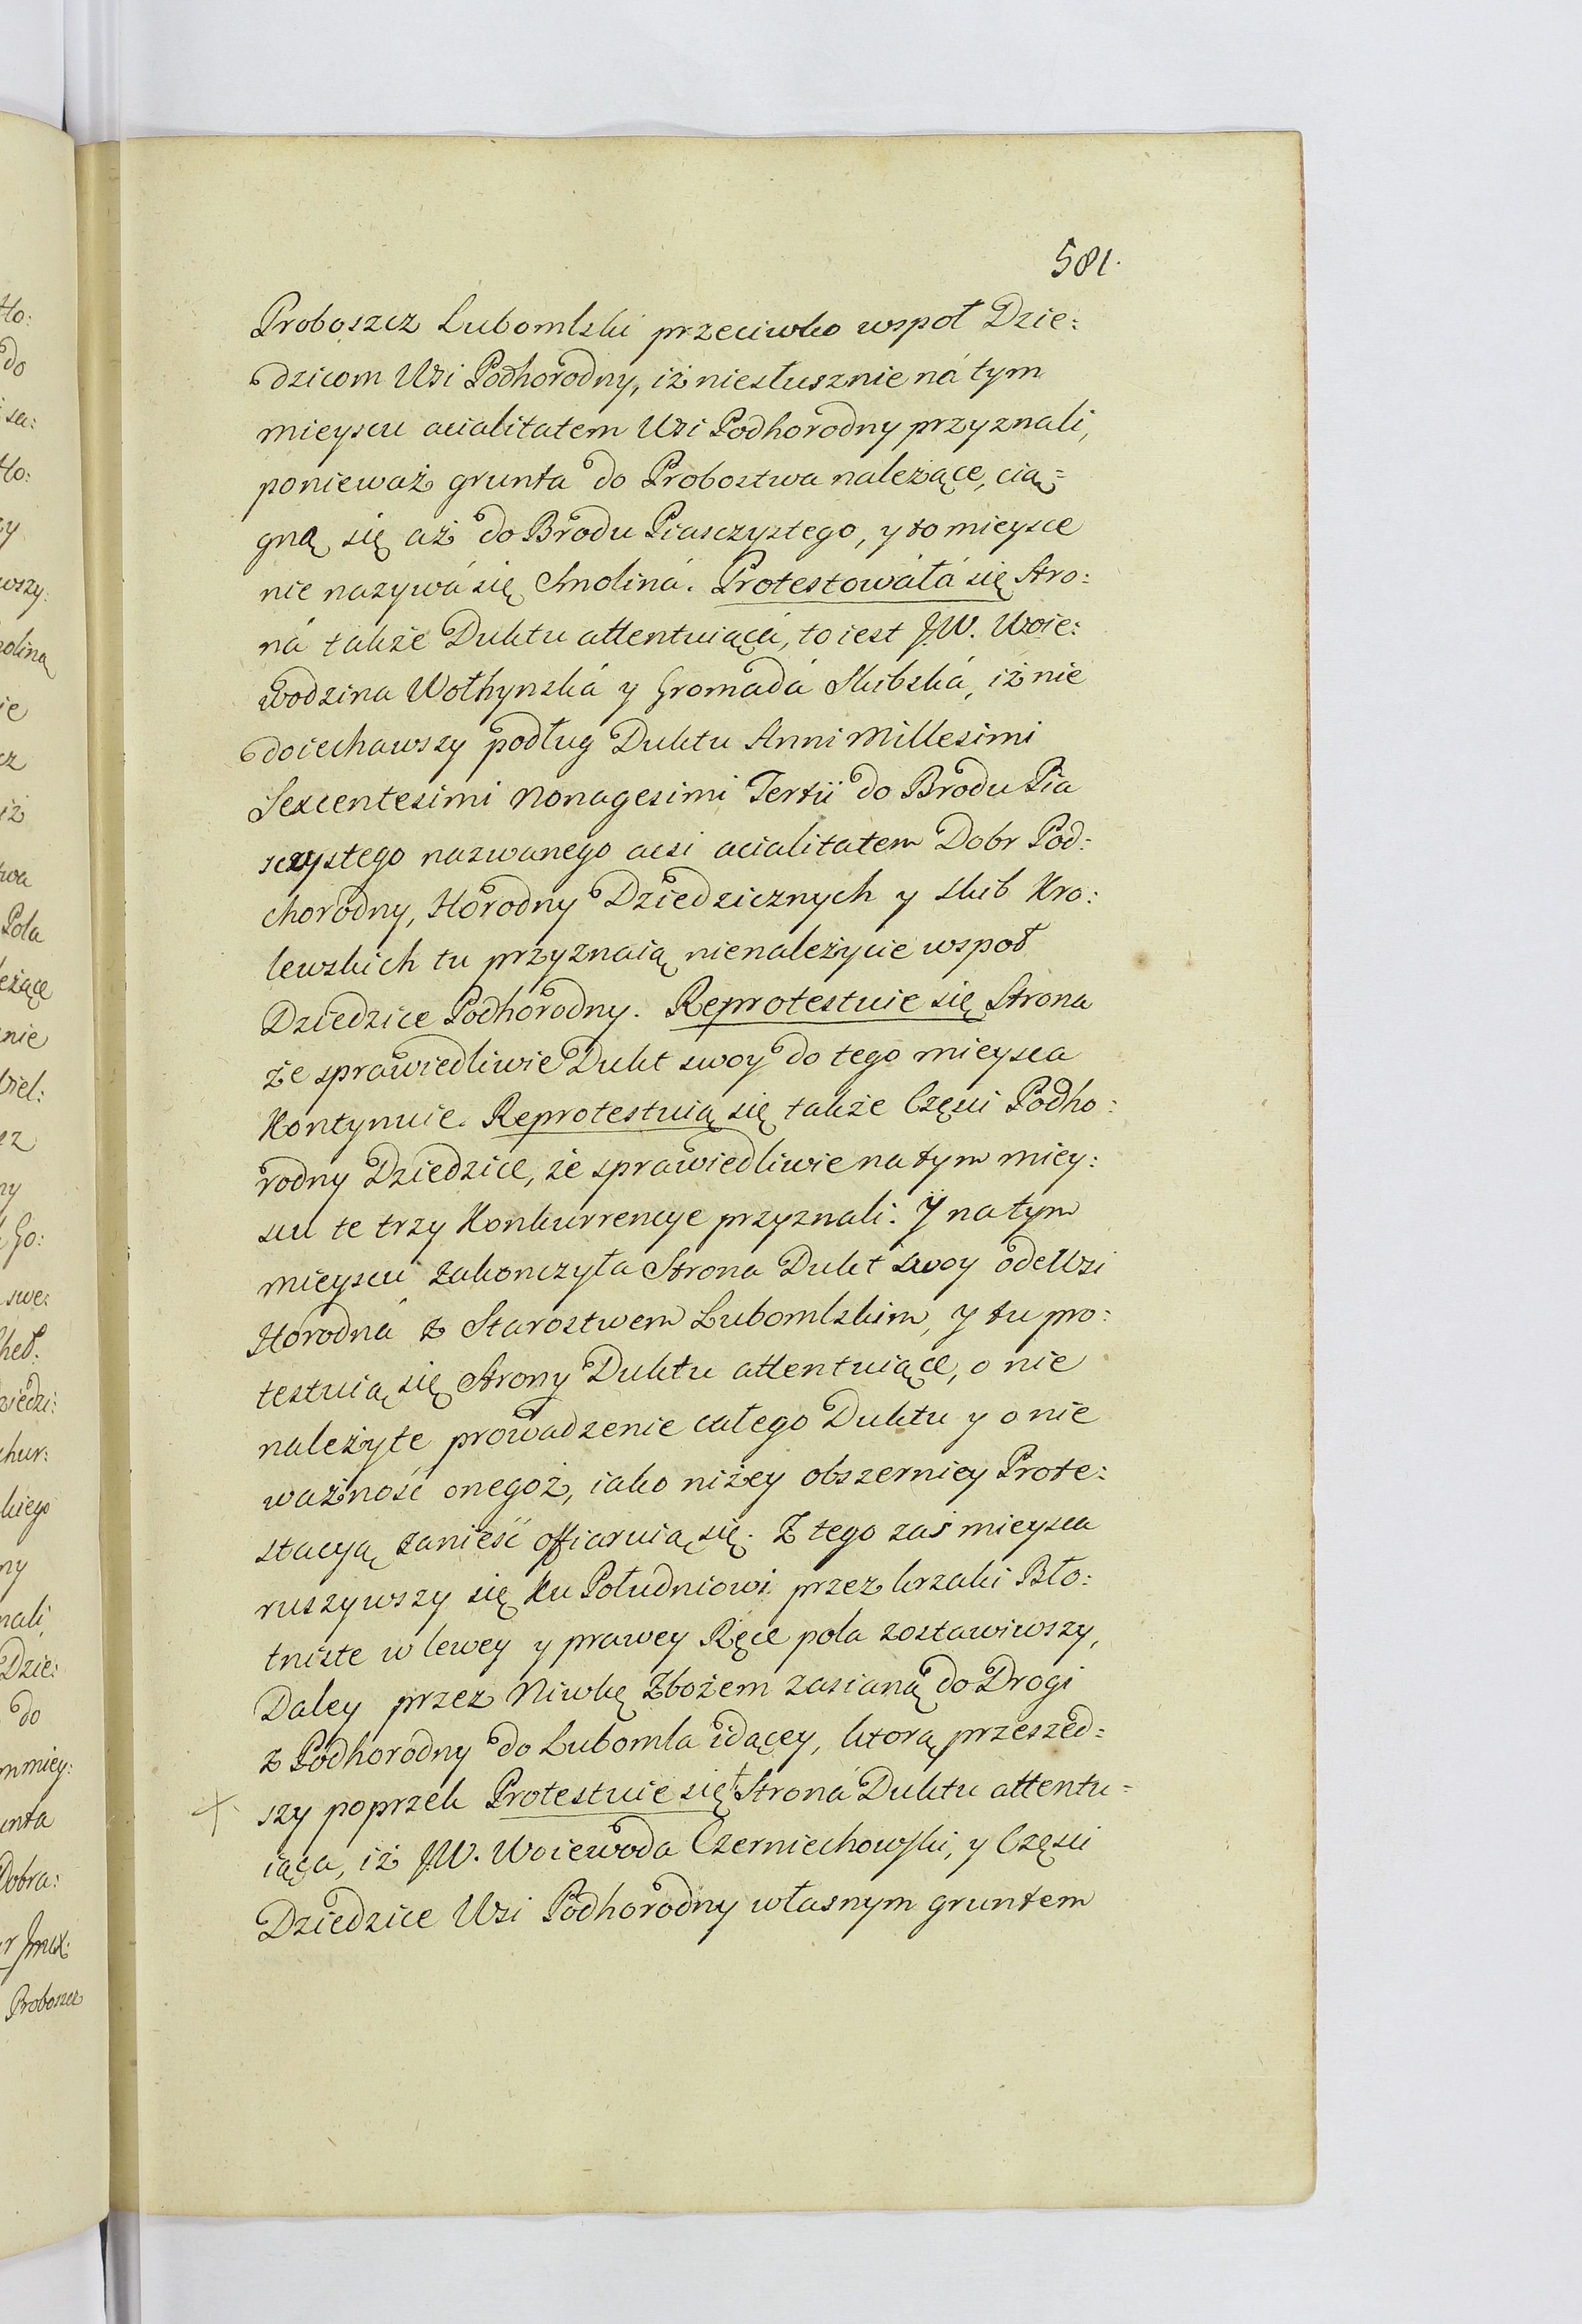 581.
Proboszcz Lubomlski przeciwko wspoł Dzie:
dzicom Wsi Podhorodny, iż niesłusznie ná tym
mieyscu acialitatem Wsi Podhorodny przyznali,
ponieważ grunta do Probostwa należące, cią=
gną się aż do Brodu Piasczystego, y to mieysce
nie nazywá się Smoliná. Protestowáłá się Stro:
ná także Duktu attentuiąca, to iest J.W. Woie:
wodzina Wołhynská y Gromadá Skibská, iż nie
doiechawszy podług Duktu Anni Millesimi
Sexcentesimi Nonagesimi Tertii do Brodu Pia
sczystego nazwanego acsi acialitatem Dobr Pod:
chorodny, Horodny Dziedzicznych y Skib Kro:
lewskich tu przyznaią nienależycie wspoł
Dziedzice Podhorodny. Reprotestuie się Strona
że sprawiedliwie Dukt swoy do tego mieysca
Kontynuie. Reprotestuią się także Części Podho:
rodny Dziedzice, że sprawiedliwie na tym miey:
scu te trzy Konkurrencye przyznali. Y na tym
mieyscu zakonczyła Strona Dukt swoy ode Wsi
Horodná z Starostwem Lubomlskim, y tu pro:
testuią się Strony Duktu attentuiące, o nie
należyte prowadzenie całego Duktu y o nie
ważność onegoż, iako niżey obszerniey Prote:
stacyą zanieść offiaruią się. Z tego zaś mieysca
ruszywszy się ku Południowi przez krzaki Bło:
tniste w lewey y prawey Ręce pola zostawiwszy,
Daley przez Niwkę Zbożem zasianą do Drogi
z Podhorodny do Lubomla idącey, ktorą przeszed=
szy poprzek Protestuie się Stroná Duktu attentu=
iąca, iż J.W. Woiewoda Czerniechowski, y Części
Dziedzice Wsi Podhorodny własnym gruntem